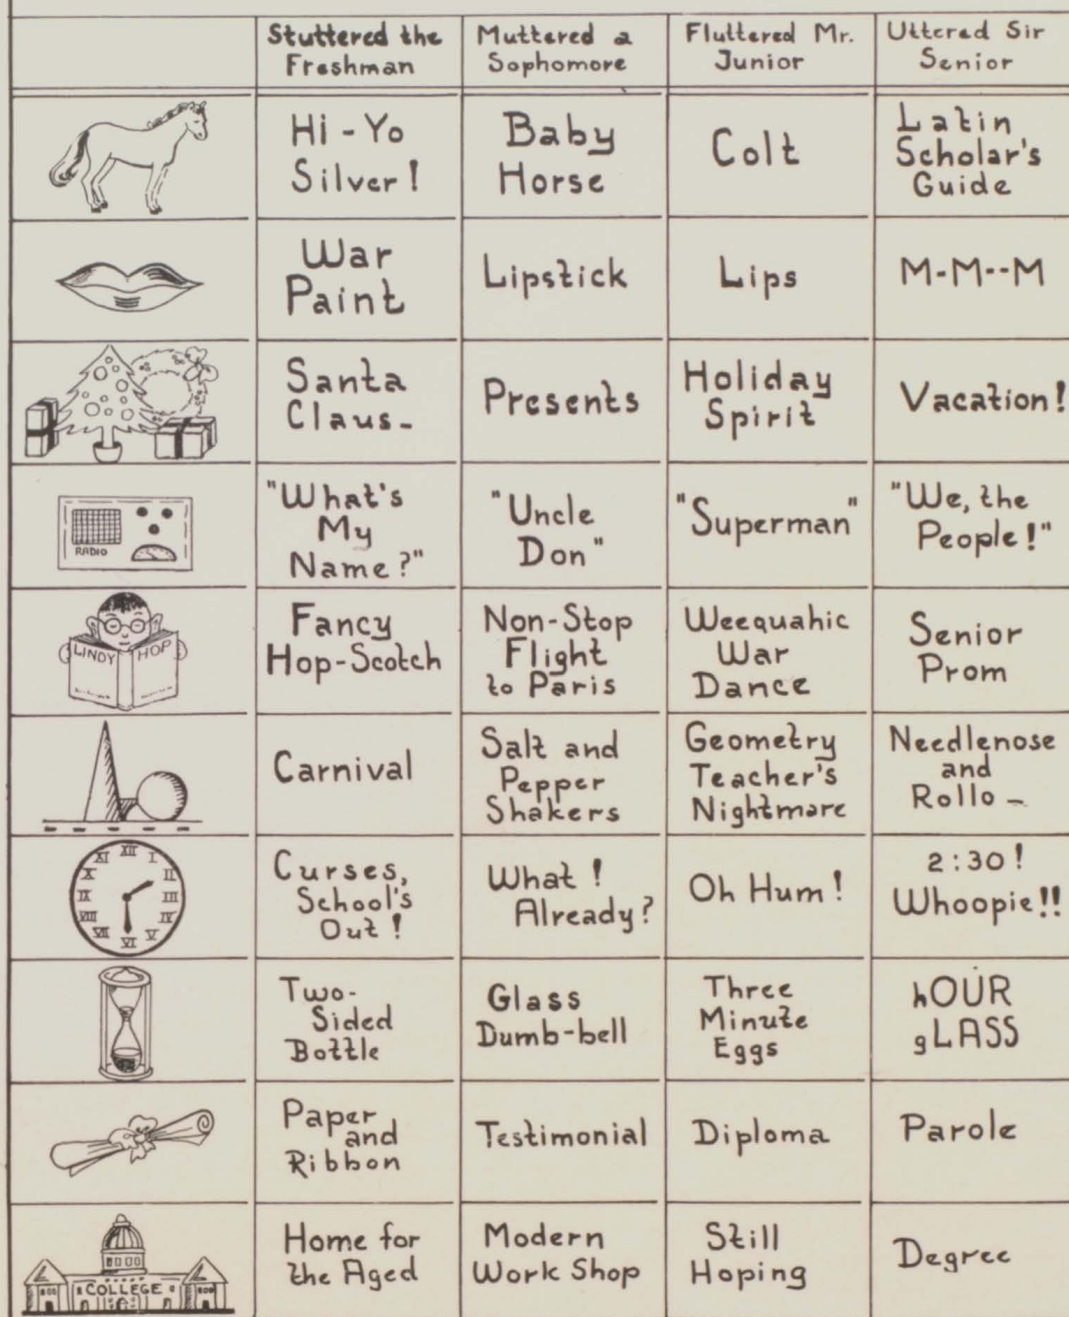 Stuttered the
Freshman
Muttered a
Sophomore
Fluttered Mr.
Junior
Uttered Sir
Senior
Hi-Yo
Silver!
Baby
Horse
Colt
Latin
Scholar's
Guide
War
Paint
Lipstick
Lips
M-M--M
Santa
Claus-
Presents
Holiday
Spirit
Vacation!
RADIO
"What's
My
Name?"
"Uncle
Don"
"Superman"
"We, the
People!"
LINDY HOP
Fancy
Hop-Scotch
Non-Stop
Flight
to Paris
Weequahic
War
Dance
Senior
Prom
Carnival
Salt and
Pepper
Shakers
Geometry
Teacher's
Nightmare
Needlenose
and
Rollo-
XII
XI I
X II
IX III
VIII IV
VII V
VI
Curses,
School's
Out!
What!
Already?
Oh Hum!
2:30!
Whoopie!!
Two-
Sided
Bottle
Glass
Dumb-bell
Three
Minute
Eggs
hOUR
gLASS
Paper
and
Ribbon
Testimonial
Diploma
Parole
COLLEGE
Home for
the Aged
Modern
Work Shop
Still
Hoping
Degree